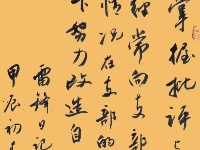 掌握批评与
经常向支部
情况在支部的
下努力改造自
雷锋日记
甲辰初